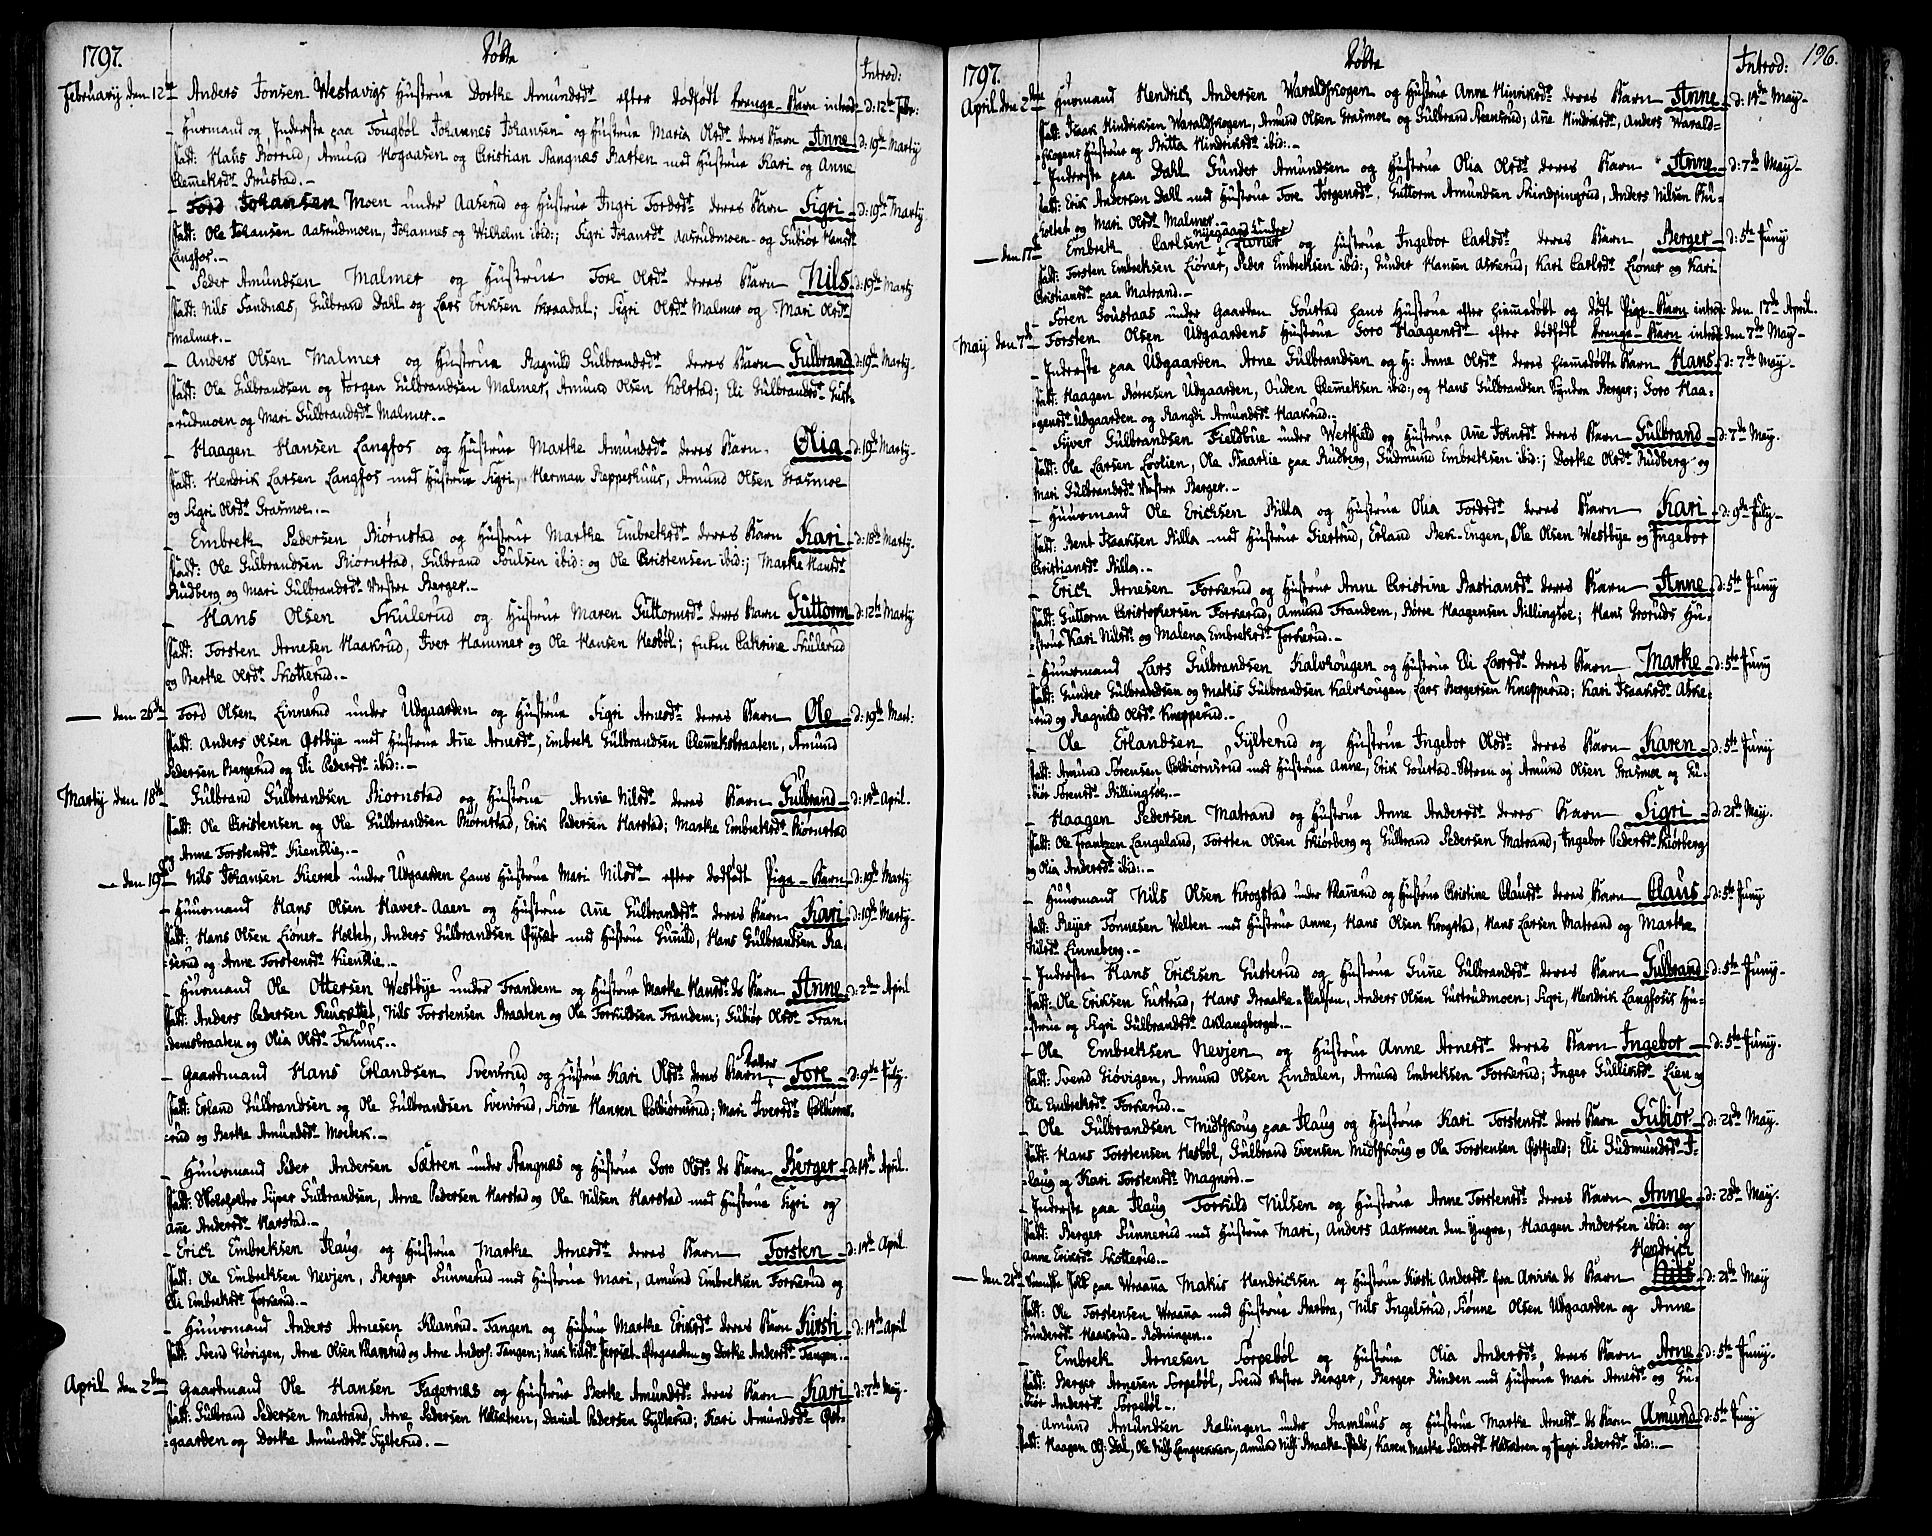 1797. Døbte Introd:
February den 12te Anders Jonsen Westavigs Hustrue Dorthe Amundsdr efter dødfødt Drenge-Barn introd: d: 12te Febr:
- Huusmand og Inderste paa Tongbøl Johannes Johansen og Hustrue Maria Olsdr deres Barn Anne d: 19de Martij
Fadd: Hans Borrud, Amund Hogaasen og Christian Stangnæs Bratten med Hustrue Kari og Anne
Clemetsdr Brustad.-
- Moen under Aaserud og Hustrue Ingri Tordsdr deres Barn Sigri d: 19de Martij
Fadd: Ole Johansen Aasrudmoen, Johannes og Wilhelm ibid:; Sigri Johansdr Aasrudmoen og Gubiør Hansdr
Langfos.-
- Peder Amundsen Malmer og Hustrue Tore Olsdr deres Barn Nils d: 19de Martij
Fadd: Nils Sandnæs, Gulbrand Dahl og Lars Eriksen Skraadal; Sigri Olsdr Malmer og Mari Olsdr
Malmer.-
- Anders Olsen Malmer og Hustrue Ragnild Gulbrandsdr deres Barn Gulbrand d: 19de Martij.
Fadd: Ole Gulbrandsen og Jørgen Gulbrandsen Malmer, Amund Olsen Kolstad; Eli Gulbrandsdr Gust-
=rudmoen og Mari Gulbrandsdr Malmer.-
- Haagen Hansen Langfos og Hustrue Marthe Amundsdr deres Barn Olia d: 19de Martij-
Fadd: Hendrik Larsen Langfos med Hustrue Sigri, Herman Reppeshuus, Amund Olsen Grasmoe
og Sigri Olsdr Grasmoe.-
- Embrek Pedersen Biørnstad og Hustrue Marthe Embreksdr deres Barn Kari d: 18de Martij.
Fadd: Ole Gulbrandsen Biørnstad, Gulbrand Poulsen ibid: og Ole Christensen ibid:; Marthe Hansdr
Rudberg og Mari Gulbrandsdr Westre Berger.-
- Hans Olsen Skulerud og Hustrue Maren Guttormsdr deres Barn Guttorm d: 12te Martij
Fadd: Torsten Arnesen Haakrud, Iver Hammer og Ole Hansen Hesbøl; Enken Cathrine Skulerud
og Berthe Olsdr Skotterud.-
- den 26de Tord Olsen Linnerud under Udgaarden og Hustrue Sigri Arnesdr deres Barn Ole d: 19de Mart:
Fadd: Anders Olsen Østbye med Hustrue Ane Arnesdr, Embrek Gulbrandsen Clemetsbraaten, Amund
Pedersen Bergerud og Eli Pedersdr ibid:.-
Martij den 18de Gulbrand Gulbrandsen Biornstad og Hustrue Anne Nilsdr deres Barn Gulbrand d: 14de April.
Fadd: Ole Christensen og Ole Gulbrandsen Biørnstad, Erik Pedersen Harstad; Marthe Embreksdr Biørnstad
og Anne Torstensdr Kienslie.-
- den 19de Nils Johansen Kierret under Udgaarden hans Hustrue Mari Nilsdr efter dødfødt Pige-Barn d: 19de Martij
- Huusmand Hans Olsen Haver-Aaen og Hustrue Ane Gulbrandsdr deres Barn Kari d: 19de Martij-
Fadd: Hans Olsen Liøner-Holtet, Anders Gulbrandsen Øyset med Hustrue Gunild, Hans Gulbrandsen Ra-
=serud og Anne Torstensdr Kienslie.-
- Huusmand Ole Ottersen Westbye under Trandem og Hustrue Marthe Hansdr ds Barn Anne d: 2den April
Fadd: Anders Pedersen, Nils Torstensen Braaten og Ole Torkildsen Trandem; Gubiør Olsdr Tran-
demsbraaten og Olia Olsdr.-
- Gaardmand Hans Erlandsen Svensrud og Hustrue Kari Olsdr deres Barn Datter Tore d: 9de July.
Fadd: Erland Gulbrandsen og Ole Gulbrandsen Svensrud, Siønne Hansen Colbiørnsrud; Mari Iversdr Colbiørns-
rud og Berthe Amundsdr Moebek.-
- Huusmand Peder Andersen Sætren under Stangnæs og Hustrue Goro Olsdr ds Barn Berger d: 14de April.
Fadd: Skoleholder Syver Gulbrandsen, Arne Pedersen Harstad og Ole Nilsen Harstad med Hustrue Sigri og
Ane Andersdr Harstad.-
- Erich Embreksen Flaug og Hustrue Marthe Arnesdr deres Barn Torsten d: 14de April
Fadd: Ole Embreksen Nevjen, Berger Sunnerud med Hustrue Mari, Amund Embreksen Torkerud og
Eli Embreksdr Torkerud.-
- Huusmand Anders Arnesen Klanrud-Tangen og Hustrue Marthe Eriksdr deres Barn Kirsti d: 14de April
Fadd: Svend Giøvigen, Arne Olsen Klanrud og Arne Anders: Tangen; Mari Nilsdr og Dorthe Andersdr Tangen.-
April den 2den Gaardmand Ole Hansen Fagernæs og Hustrue Berthe Amundsdr deres Barn Kari d: 7de May-
Fadd: Gulbrand Pedersen Matrand, Arne Pedersen Holsætren, Daniel Pedersen Gylterud; Kari Amundsdr Øst-
=gaarden og Dorthe Amundsdr Gylterud.-
1797. Døbte Introd: 196.
April den 2den Huusmand Hendrich Andersen Waraldskogen og Hustrue Anne Hinriksdr deres Barn Anne d: 14de May-
Fadd: Isaak Hindriksen Waraldskogen, Amund Olsen Grasmoe og Gulbrand; Ane Hindriksdr, Anders Warald-
=skogens Hustrue og Britta Hindriksdr ibid:.-
- Inderste paa Dahl Gunder Amundsen og Hustrue Olia Olsdr deres Barn Anne d: 7de May-
Fadd: Erik Andersen Dahl med Hustrue Tore Jørgensdr, Guttorm Amundsen Skindpungrud, Anders Nilsen Blu-
koltet og Mari Olsdr Malmer.-
- den 17de Embrek Carlsen nyegaard under Liøner og Hustrue Ingebor Carlsdr deres Barn Berger d: 5te Juny
Fadd: Torsten Embreksen Liøner, Peder Embreksen ibid:, Gunder Hansen Askerud; Kari Carlsdr Liøner og Kari
Christiansdr paa Matrand.-
Søren Goustaas under Gaarden Goustad hans Hustrue efter hiemmedøbt og dødt Pige-Barn introd: den 17de April.
May den 7de Torsten Olsen Udgaardens Hustrue Goro Haagensdr efter dødfødt Drenge-Barn introd: den 7de May-
- Inderste paa Udgaarden Arne Gulbrandsen og H: Anne Olsdr deres hiemmedøbte Barn Hans d: 7de May-
Fadd: Haagen Børresen Udgaarden, Ouden Clemetsen ibid:, og Hans Gulbrandsen Syndre Berger; Goro Haa-
gensdr Udgaarden og Rangdi Amundsdr Haakrud.-
- Syver Gulbrandsen Fieldbue under Westfield og Hustrue Ane Johnsdr deres Barn Gulbrand d: 7de May.
Fadd: Ole Larsen Loolien, Ole Baarlie paa Rudberg, Gudmund Embreksen ibid:; Dorthe Olsdr Rudberg og
Mari Gulbrandsdr Westre Berger.-
- Huusmand Ole Erichsen Billa og Hustrue Olia Tordsdr deres Barn Kari d: 9de July-
Fadd: Bent Isaksen Billa med Hustrue Giertrud, Erland Bek-Engen, Ole Olsen Westbye og Ingebor
Christiansdr Billa.-
- Erich Arnesen Torkerud og Hustrue Anne Christine Bastiansdr deres Barn Anne d: 5te Juny
Fadd: Guttorm Christophersen Torkerud, Amund Trandem, Børre Haagensen Billingsoe; Hans Groruds Hu-
=strue Kari Nilsdr og Malena Embreksdr Torkerud.-
- Huusmand Lars Gulbrandsen Kalvhougen og Hustrue Eli Larsdr deres Barn Marthe d: 5te Juny
Fadd: Gunder Gulbrandsen og Mathis Gulbrandsen Kalvhougen, Lars Bergersen Knepperud; Kari Isaaksdr Aske-
rud og Ragnild Olsdr Knepperud.-
- Ole Erlandsen Gylterud og Hustrue Ingebor Olsdr deres Barn Karen d: 5te Juny
Fadd: Amund Sørensen Colbiørnsrud med Hustrue Anne, Erik Goustad-Sætren og Amund Olsen Grasmoe og Gu-
biør Sørensdr Billingsøe.-
- Haagen Pedersen Matrand og Hustrue Anne Andersdr deres Barn Sigri d: 28de May.
Fadd: Ole Frantzen Langeland, Torsten Olsen Skiørberg og Gulbrand Pedersen Matrand, Ingebor Pedersdr Skiørberg
og Olia Andersdr ibid:.-
- Huusmand Nils Olsen Krogstad under Klanerud og Hustrue Christine Clausdr deres Barn Claus d: 5te Juny
Fadd: Reyer Tønnesen Velten med Hustrue Anne, Hans Olsen Krogstad, Hans Larsen Matrand og Marthe
Nilsdr Linneberg.-
- Inderste Hans Erichsen Gusterud og Hustrue Gune Gulbrandsdr deres Barn Gulbrand d: 5te Juny-
Fadd: Ole Eriksen Gustrud, Hans Braate-Pladsen, Anders Olsen Gustrudmoen; Sigri, Hendrik Langfosis Hu-
=strue og Sigri Gulbrandsdr Aklangberget.-
- Ole Embreksen Nevjen og Hustrue Anne Arnesdr deres Barn Ingebor d: 5te Juny.
Fadd: Svend Giøvigen, Amund Olsen Lindalen, Amund Embreksen Torkerud; Inger Gulliksdr Lien og
Eli Embreksdr Torkerud.-
- Ole Gulbrandsen Midtskoug paa Flaug og Hustrue Kari Torstensdr deres Barn Gubiør d: 28de May.
Fadd: Hans Torstensen Hesbøl, Gulbrand Evensen Midtskoug og Ole Torstensen Østfield; Eli Gudmundsdr F-
=laug og Kari Torstensdr Magnord.-
- Inderste paa Flaug Torkild Nilsen og Hustrue Anne Torstensdr deres Barn Anne d: 28de May.
Fadd: Berger Sunnerud med Hustrue Mari, Anders Aasmoen den Yngre, Haagen Andersen ibid: og
Anne Eriksdr Skotterud.-
Hendrich
- den 28de paa Wraana Mathis Hendrichsen og Hustrue Kirsti Andersdr fra Arvika ds Barn Nils d: 28de May
Fadd: Ole Torstensen Wraana med Hustrue Barbra, Nils Ingelsrud, Siønne Olsen Udgaarden og Anne
Gundersdr Haakrud-Rødningen.-
- Embrek Arnesen Torpebøl og Hustrue Olia Andersdr deres Barn Arne d: 5te Juny.
Fadd: Berger Arnesen Torpebøl, Svend Westre Berger, Berger Rinden med Hustrue Mari Arnesdr og Gu-
biør Andersdr Torpebøl.-
- Amund Amundsen Rælingen under Tramhuus og Hustrue Marthe Arnesdr ds Barn Amund d: 5te Juny
Fadd: Haagen Ols: Dal, Ole Nils: Langerassen, Amund Nils: Braate-Plads, Karen Marthe Pedersdr Holsætren og Ingri Pedersdr ibid:.-